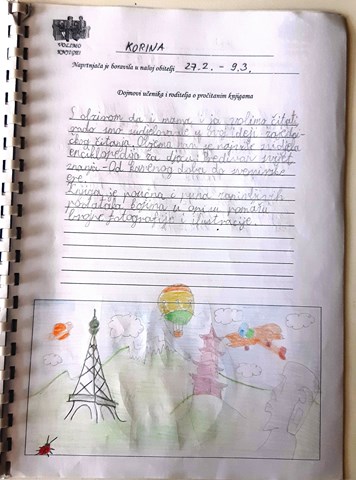 VOLIMO
KNJIGU
KORINA
Naprtnjača je boravila u našoj obitelji 27.2. - 9.3.
Dojmovi učenika i roditelja o pročitanim knjigama
S obzirom da i mama i ja volimo čitati,
rado smo sudjelovale u ideji zajed-
čkog čitanja. nam je najviše svidjela
enciklopedija za djecu svijet
znanja - Od kamenog doba do
ere!
Knjiga je poučna i puna zanimljivih
podataka kojima u pomažu
brojne fotografije i ilustracije.